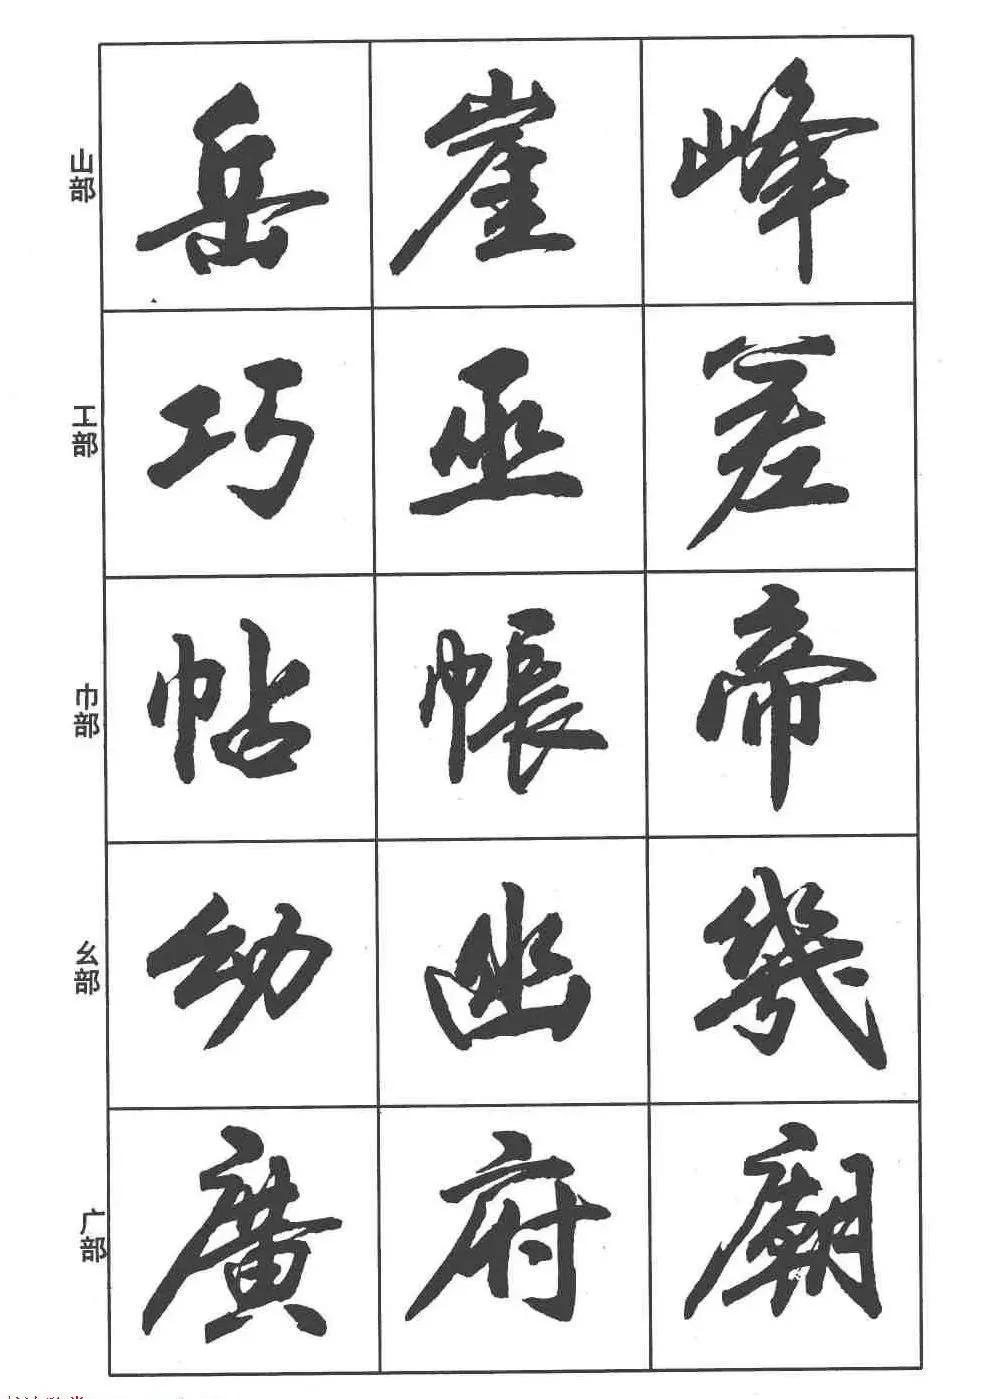 山部
岳 崖 峰
工部
巧 巫 差
巾部
帖 帳 帝
幺部
幼 幽 幾
广部
廣 府 廟